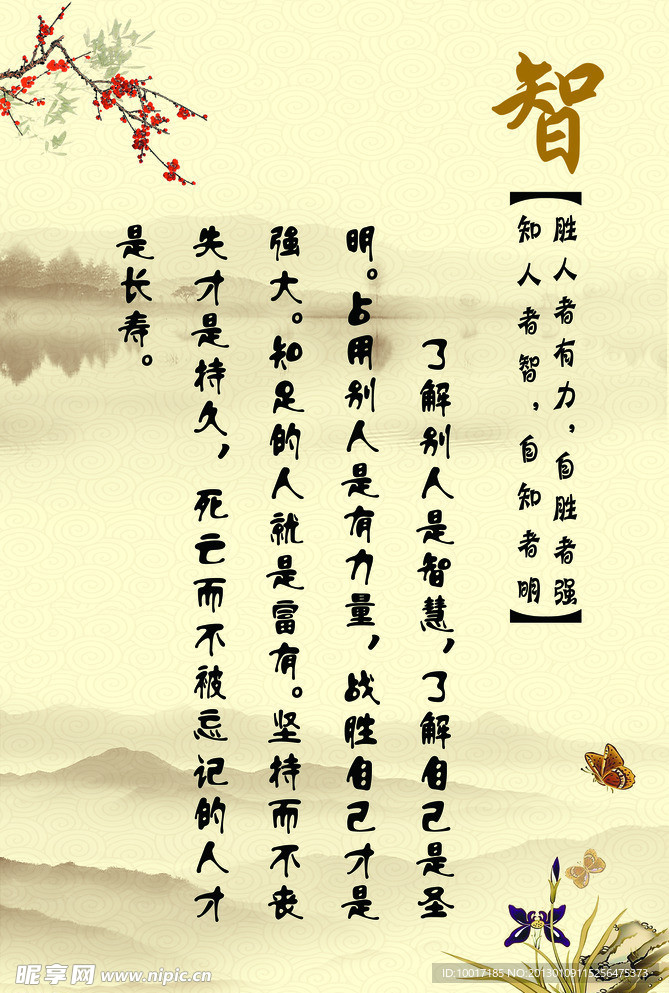 智
【胜人者有力，自胜者强
知人者智，自知者明】
了解别人是智慧，了解自己是圣
明。占用别人是有力量，战胜自己才是
强大。知足的人就是富有。坚持而不丧
失才是持久，死亡而不被忘记的人才
是长寿。
昵享网 www.nipic.cn
ID:10017185 NO:20130109115256475373